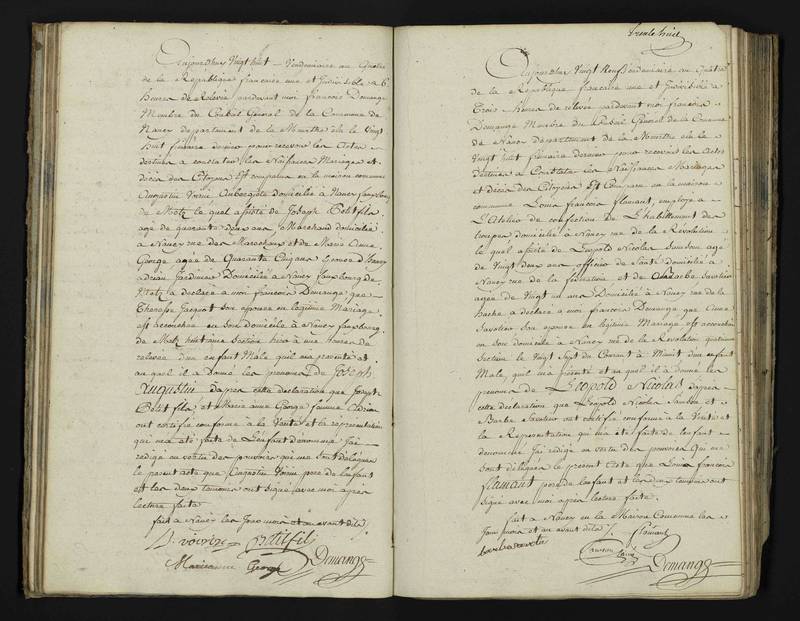 Aujourdhui Vingt huit Vendemiaire an Quatre
de la Republique francaise une et Indivisible a 6
heures de Relevée pardevant moi francois Demange
Membre du Conseil Général de la Commune de
Nancy departement de la Meurthe elu le Vingt
huit frimaire dernier pour recevoir les Actes
destinés a constater les Naissances Mariages et
décès des Citoyens Est comparu en la maison commune
Augustin Voirin Aubergiste domicilié à Nancy fauxbourg
de Metz le quel assisté de Joseph Petitfils
agé de quarante deux ans Marchand domicilié
a Nancy rue des Marechaux et de Marie Anne
George agée de Quarante Cinq ans
Jardinier Domicilié à Nancy fauxbourg de
Metz a déclaré a moi francois Demange que
Therese Jacquot son epouse en légitime Mariage
est accouchée en son domicile a Nancy fauxbourg
de Metz huitieme Section hier a une heure de
relevée d'un enfant Male quil ma presenté et
au quel il a donné les prenoms de Joseph
Augustin dapres cette declaration que Joseph
Petitfils et Marie Anne George femme
ont certifié conforme a la Verité et la representation
qui ma été faite de L'enfant denommé Jai
redigé en vertu des pouvoirs qui me sont délégués
le present acte que Augustin Voirin pere de lenfant
et les deux temoins ont signé avec moi apres
lecture faite
fait a Nancy les Jour mois et an avant dits
A. voirin Petitfils
Marieanne George Demange
trente huit
Aujourdhui Vingt Neuf Vendemiaire an Quatre
de la Republique francaise une et Indivisible a
Trois heures de relevée pardevant moi francois
Demange Membre du Conseil Général de la Commune
de Nancy Departement de la Meurthe elu le
Vingt huit frimaire dernier pour recevoir les Actes
destinés a Constater les Naissances Mariages
et décès des Citoyens Est Comparu en la maison
commune Louis francois flamant, employé a
L'Atelier de confection de L'habillement des
troupes domicilié a Nancy rue de la Révolution
le quel assisté de Leopold Nicolas Sanson agé
de Vingt deux ans officier de Santé domicilié a
Nancy rue de la féderation et de Barbe Savatier
agée de Vingt un ans Domiciliée a Nancy rue de la
hache a declaré a moi francois Demange que Anne
Savatier son epouse en légitime Mariage est accouchée
en son domicile a Nancy rue de la Revolution quatrieme
Section le Vingt Sept du Courant a Minuit d'un enfant
Male, quil ma présenté et au quel il a donné les
prenoms de Léopold Nicolas dapres
cette declaration que Léopold Nicolas Sanson et
Barbe Savatier ont certifié conforme a la Verité et
la Representation qui ma été faite de lenfant
denommé Jai redigé en vertu des pouvoirs Qui me
sont délégués le present Acte que Louis francois
flamant pere de lenfant et les deux temoins ont
signé avec moi apres lecture faite.
fait a Nancy en la Maison Commune les
Jour mois et an avant dits flamant
Demange